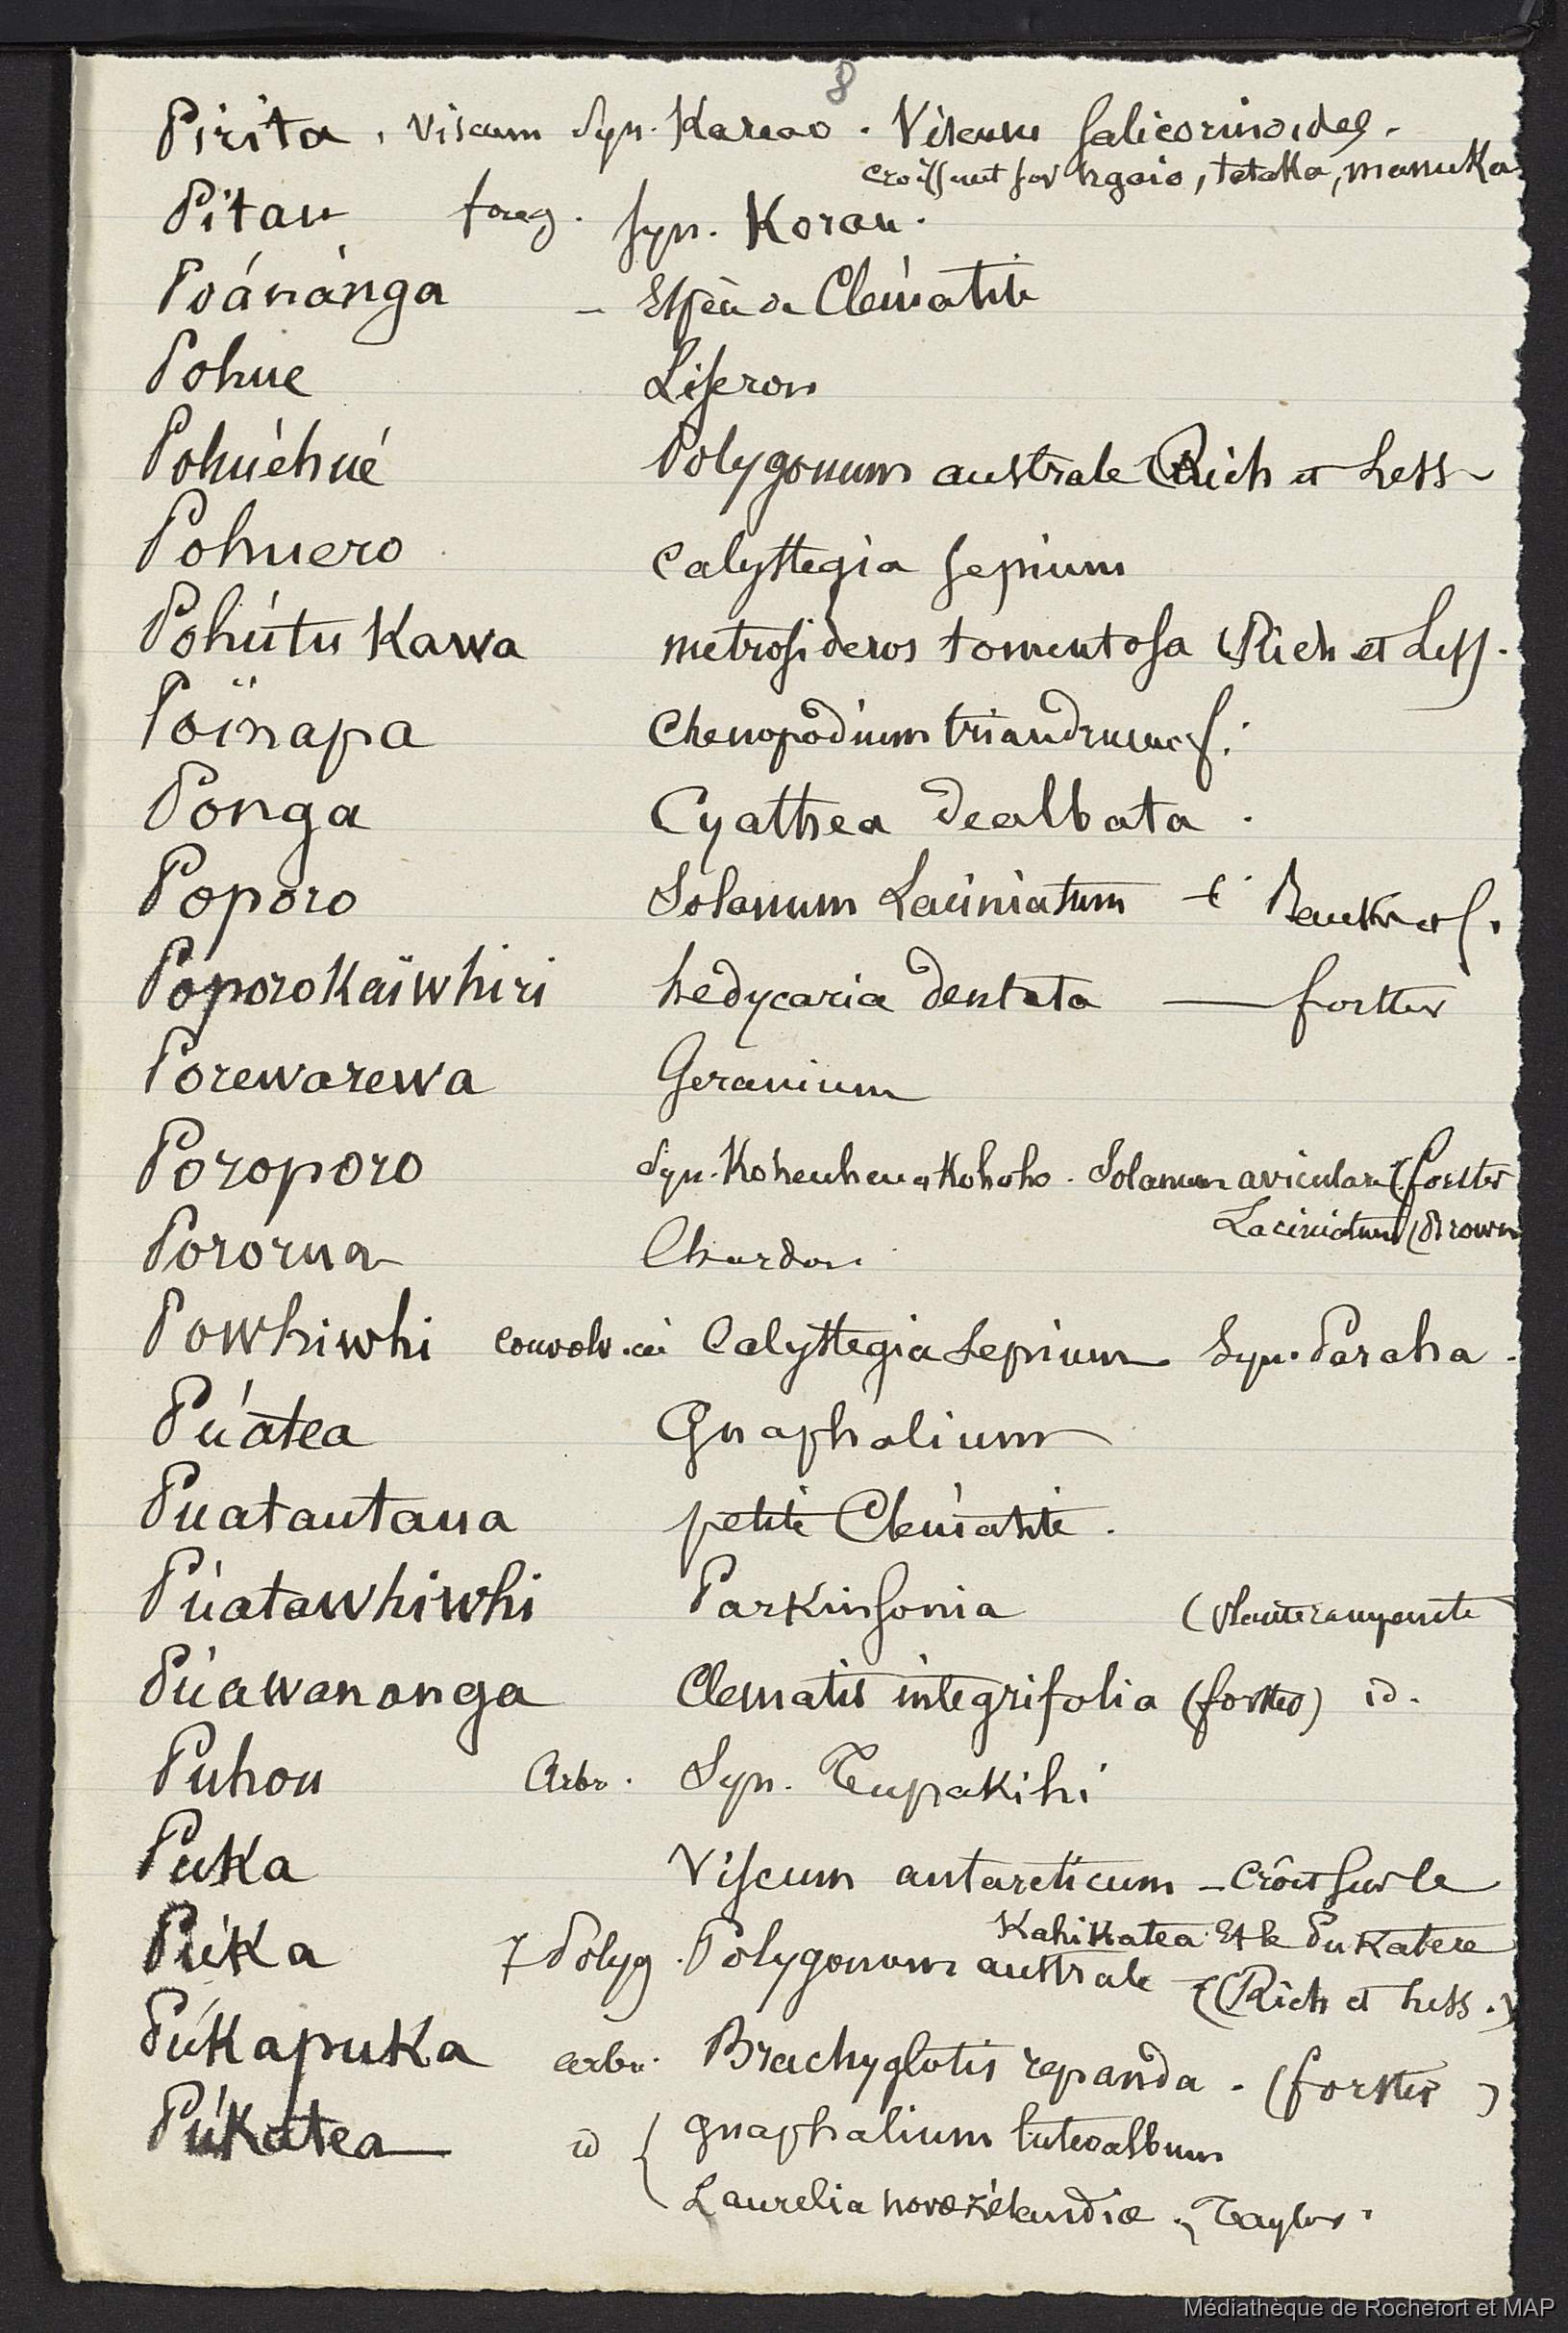 8
Pirita . Viscum Syn. Kareao . Viscum Salicornioides .
croissant sur ngaio, tataka, manuka
Pitau foug. Syn. Korau .
Poánánga – Espèce de Clématite
Pohue Liseron
Pohuéhué Polygonum australe (Rich et Less
Pohuero Calystegia Sepium
Pohútu Kawa metrosideros tomentosa (Rich et Less .
Poïnapa Chenopodium triandrum f.
Ponga Cyathea dealbata .
Poporo Solanum Laciniatum Banks et S.
PoporoKaïwhiri hedycaria dentata — forster
Porewarewa Geranium
Poroporo Syn. Koheuheu a Kohoho . Solanum aviculare (forster
Laciniatum (Brown
Pororua Chardon
Powhiwhi Convolv.cé Calystegia Sepium Syn. Paraha .
Púatea Gnaphalium
Puatautaua petite Clématite .
Púatawhiwhi Parkinsonia (plante rampante
Púawananga Clematis integrifolia (forster) id.
Puhou Arbr . Syn. Tupakihi
Puka Viscum antarcticum – croit sur le
Kahikatea et le Pukatere
Púka Polyg . Polygonum australe (Rich et Less .)
PúKapuKa arbr . Brachyglotis repanda . (forster )
PúKatea id { gnaphalium luteoalbum
Laurelia novæ zélandiæ . Taylor .
Médiathèque de Rochefort et MAP